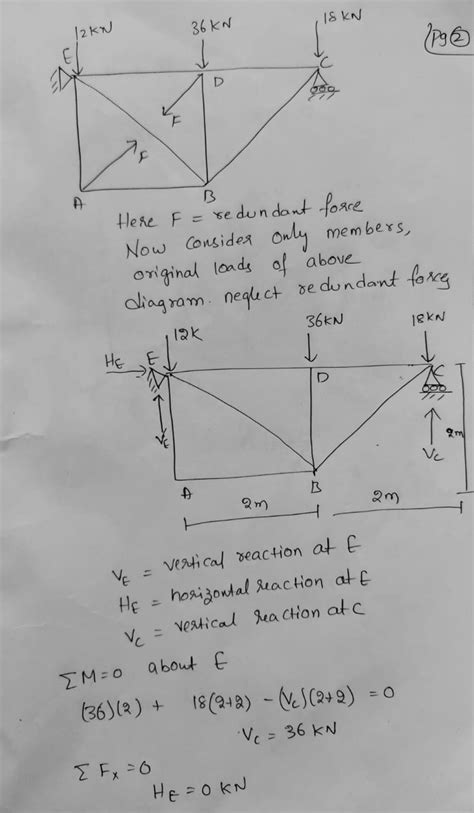 Pg ②
12KN
36 KN
18 KN
E
D
C
F
F
A
B
Here F = redundant force
Now consider only members,
original loads of above
diagram. neglect redundant forces
36KN
18KN
12K
HE
E
D
C
VE
VC
2m
A
B
2m
2m
VE = vertical reaction at E
HE = horizontal reaction at E
VC = vertical reaction at C
ΣM=0 about E
(36)(2) + 18(2+2) - (VC)(2+2) = 0
VC = 36 KN
Σ Fx = 0
HE = 0 KN